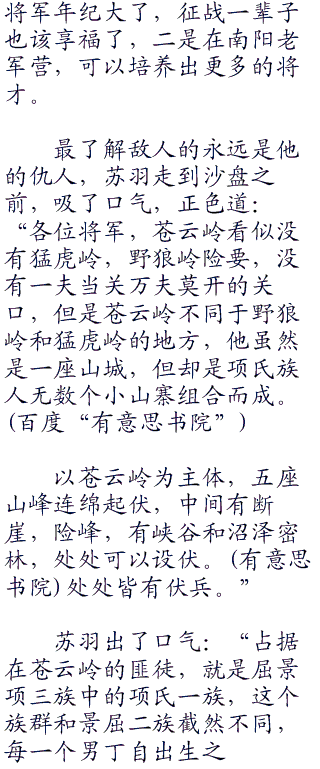 将军年纪大了，征战一辈子
也该享福了，二是在南阳老
军营，可以培养出更多的将
才。
最了解敌人的永远是他
的仇人，苏羽走到沙盘之
前，吸了口气，正色道：
“各位将军，苍云岭看似没
有猛虎岭，野狼岭险要，没
有一夫当关万夫莫开的关
口，但是苍云岭不同于野狼
岭和猛虎岭的地方，他虽然
是一座山城，但却是项氏族
人无数个小山寨组合而成。
(百度“有意思书院”)
以苍云岭为主体，五座
山峰连绵起伏，中间有断
崖，险峰，有峡谷和沼泽密
林，处处可以设伏。(有意思
书院)处处皆有伏兵。”
苏羽出了口气：“占据
在苍云岭的匪徒，就是屈景
项三族中的项氏一族，这个
族群和景屈二族截然不同，
每一个男丁自出生之